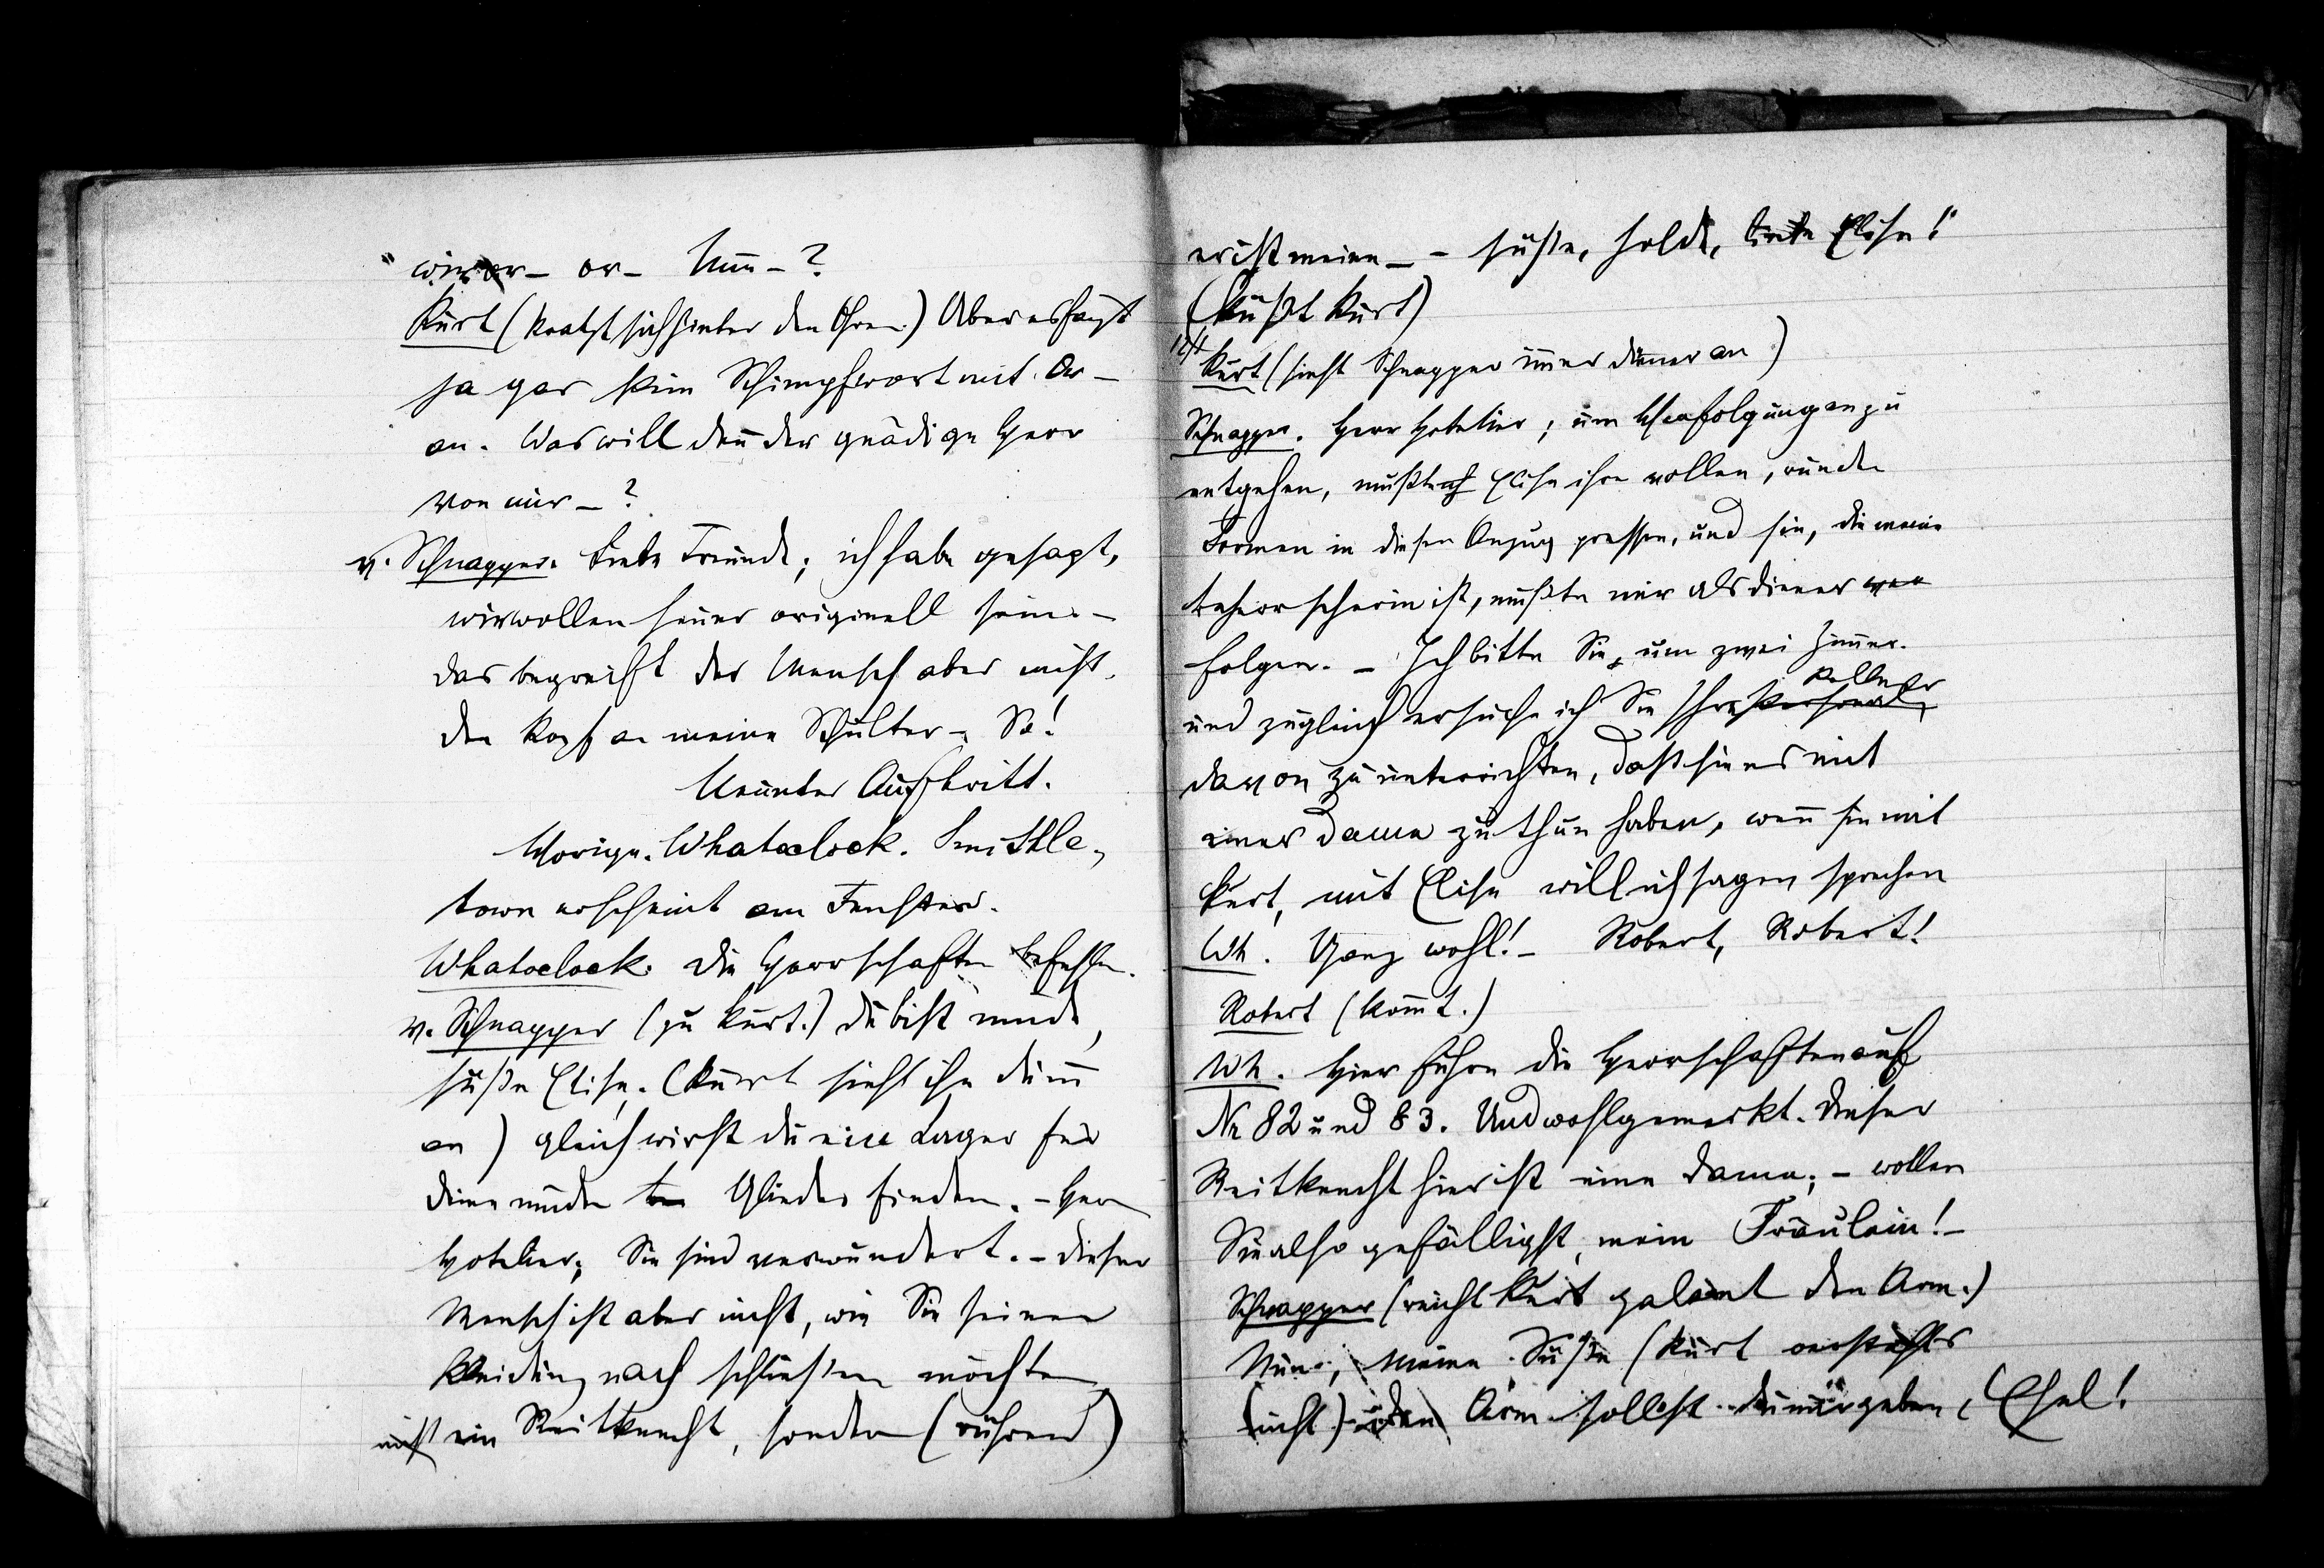 " wir or – or – Nun – ?
Kurt (kratzt sich hinter den Ohren.) Aber es fängt
ja gar kein Schimpfwort mit Or –
an. Was will denn der gnädige Herr
von mir – ?
v. Schnapper. Liebe Freunde; ich habe gesagt,
wir wollen heuer originell sein. –
das begreift der Mensch aber nicht.
den Kopf an meine Schulter – So!
Neunter Auftritt.
Vorige. Whatoclock. Smithle-
town erscheint am Fenster.
Whatoclock. Die Herrschaften befehlen.
v. Schnapper (zu Kurt.) du bist müde,
süße Elise. (Kurt sieht ihn dumm
an) gleich wirst du eine Lager für
deine müden Glieder finden. – Herr
Hotelier; Sie sind verwundert. – Dieser
Mensch ist aber nicht, wie Sie seiner
Kleidung nach schließen möchten,
nicht ein Reitknecht, sondern (rührend)
er ist meine – – süße, holde, liebe Elise!"
(küßt Kurt)
Kurt (sieht Schnapper immer dümmer an)
Schnapper. Herr Hotelier; um Verfolgungen zu
entgehen, mußte Elise ihre vollen, runden
Formen in diesen Anzug pressen, und sie, die meine
Beherrscherin ist, mußte mir als Diener
folgen. – Ich bitte Sie, um zwei Zimmer.
Kellner
und zugleich ersuche ich Sie Ihre Personal,
davon zu unterrichten, daß sie es mit
einer Dame zu thun haben, wenn sie mit
Kurt, mit Elise will ich sagen sprechen
Wh. Ganz wohl! – Robert, Robert!
Robert (kommt.)
Wh. Hier führe die Herrschaften auf
Nr 82 und 83. Und wohlgemerkt. Dieser
Reitknecht hier ist eine Dame; – wollen
Sie also gefälligst, mein Fräulein! –
Schnapper (reicht Kurt galant den Arm.)
Nun, meine Süße (Kurt versteht's
nicht) den Arm sollst du mir geben, Esel!